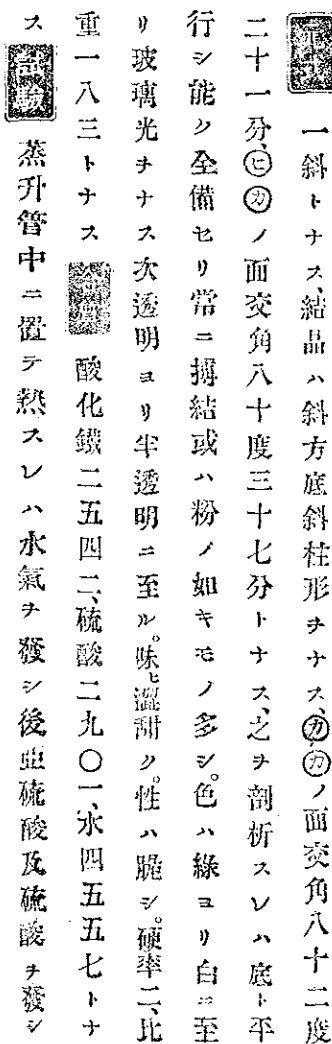 一斜トナス、結晶ハ斜方底斜柱形ヲナス、㋕㋕ノ面交角八十二度
二十一分、㋪㋕ノ面交角八十度三十七分トナス、之ヲ剖析スレハ底ト平
行シ能ク全備セリ常ニ摶結或ハ粉ノ如キモノ多シ。色ハ綠ヨリ白ニ至
リ玻璃光ヲナス次透明ヨリ半透明ニ至ル。味ヒ澀甜ク。性ハ脆シ。硬率二、比
重一八三トナス 酸化鐵二五四二、硫酸二九〇一、水四五五七トナ
ス 試驗 蒸升管中ニ置テ熱スレハ水氣ヲ發シ後亞硫酸及硫酸ヲ發シ